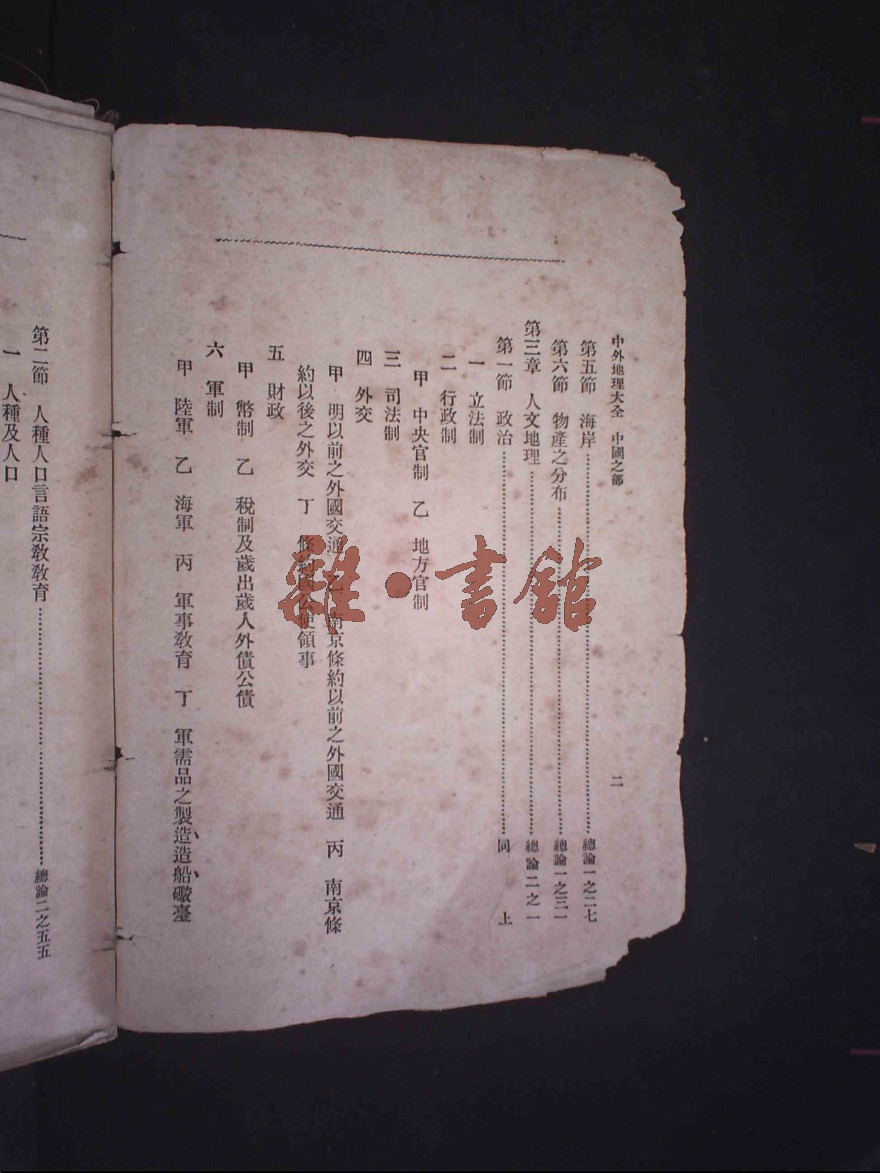 中外地理大全　中國之部　二
第五節　海岸……總論一之二七
第六節　物產之分布……總論一之三一
第三章　人文地理……總論二之一
第一節　政治……同　上
一　立法制
二　行政制
甲　中央官制　乙　地方官制
三　司法制
四　外交
甲　明以前之外國交通　乙　南京條約以前之外國交通　丙　南京條
約以後之外交　丁　條約國公使領事
五　財政
甲　幣制　乙　稅制及歲出歲入外債公債
六　軍制
甲　陸軍　乙　海軍　丙　軍事教育　丁　軍需品之製造、造船、礮臺
第二節　人種人口言語宗教教育……總論二之五五
一　人種及人口
雜·書館